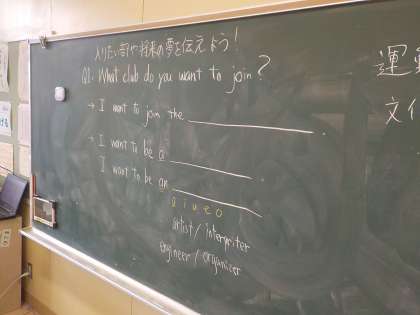 入りたい部や将来の夢を伝えよう!
Q1. What club do you want to join?
→ I want to join the
→ I want to be a
I want to be an
a i u e o
artist / interpriter
engineer / organizer
運
文